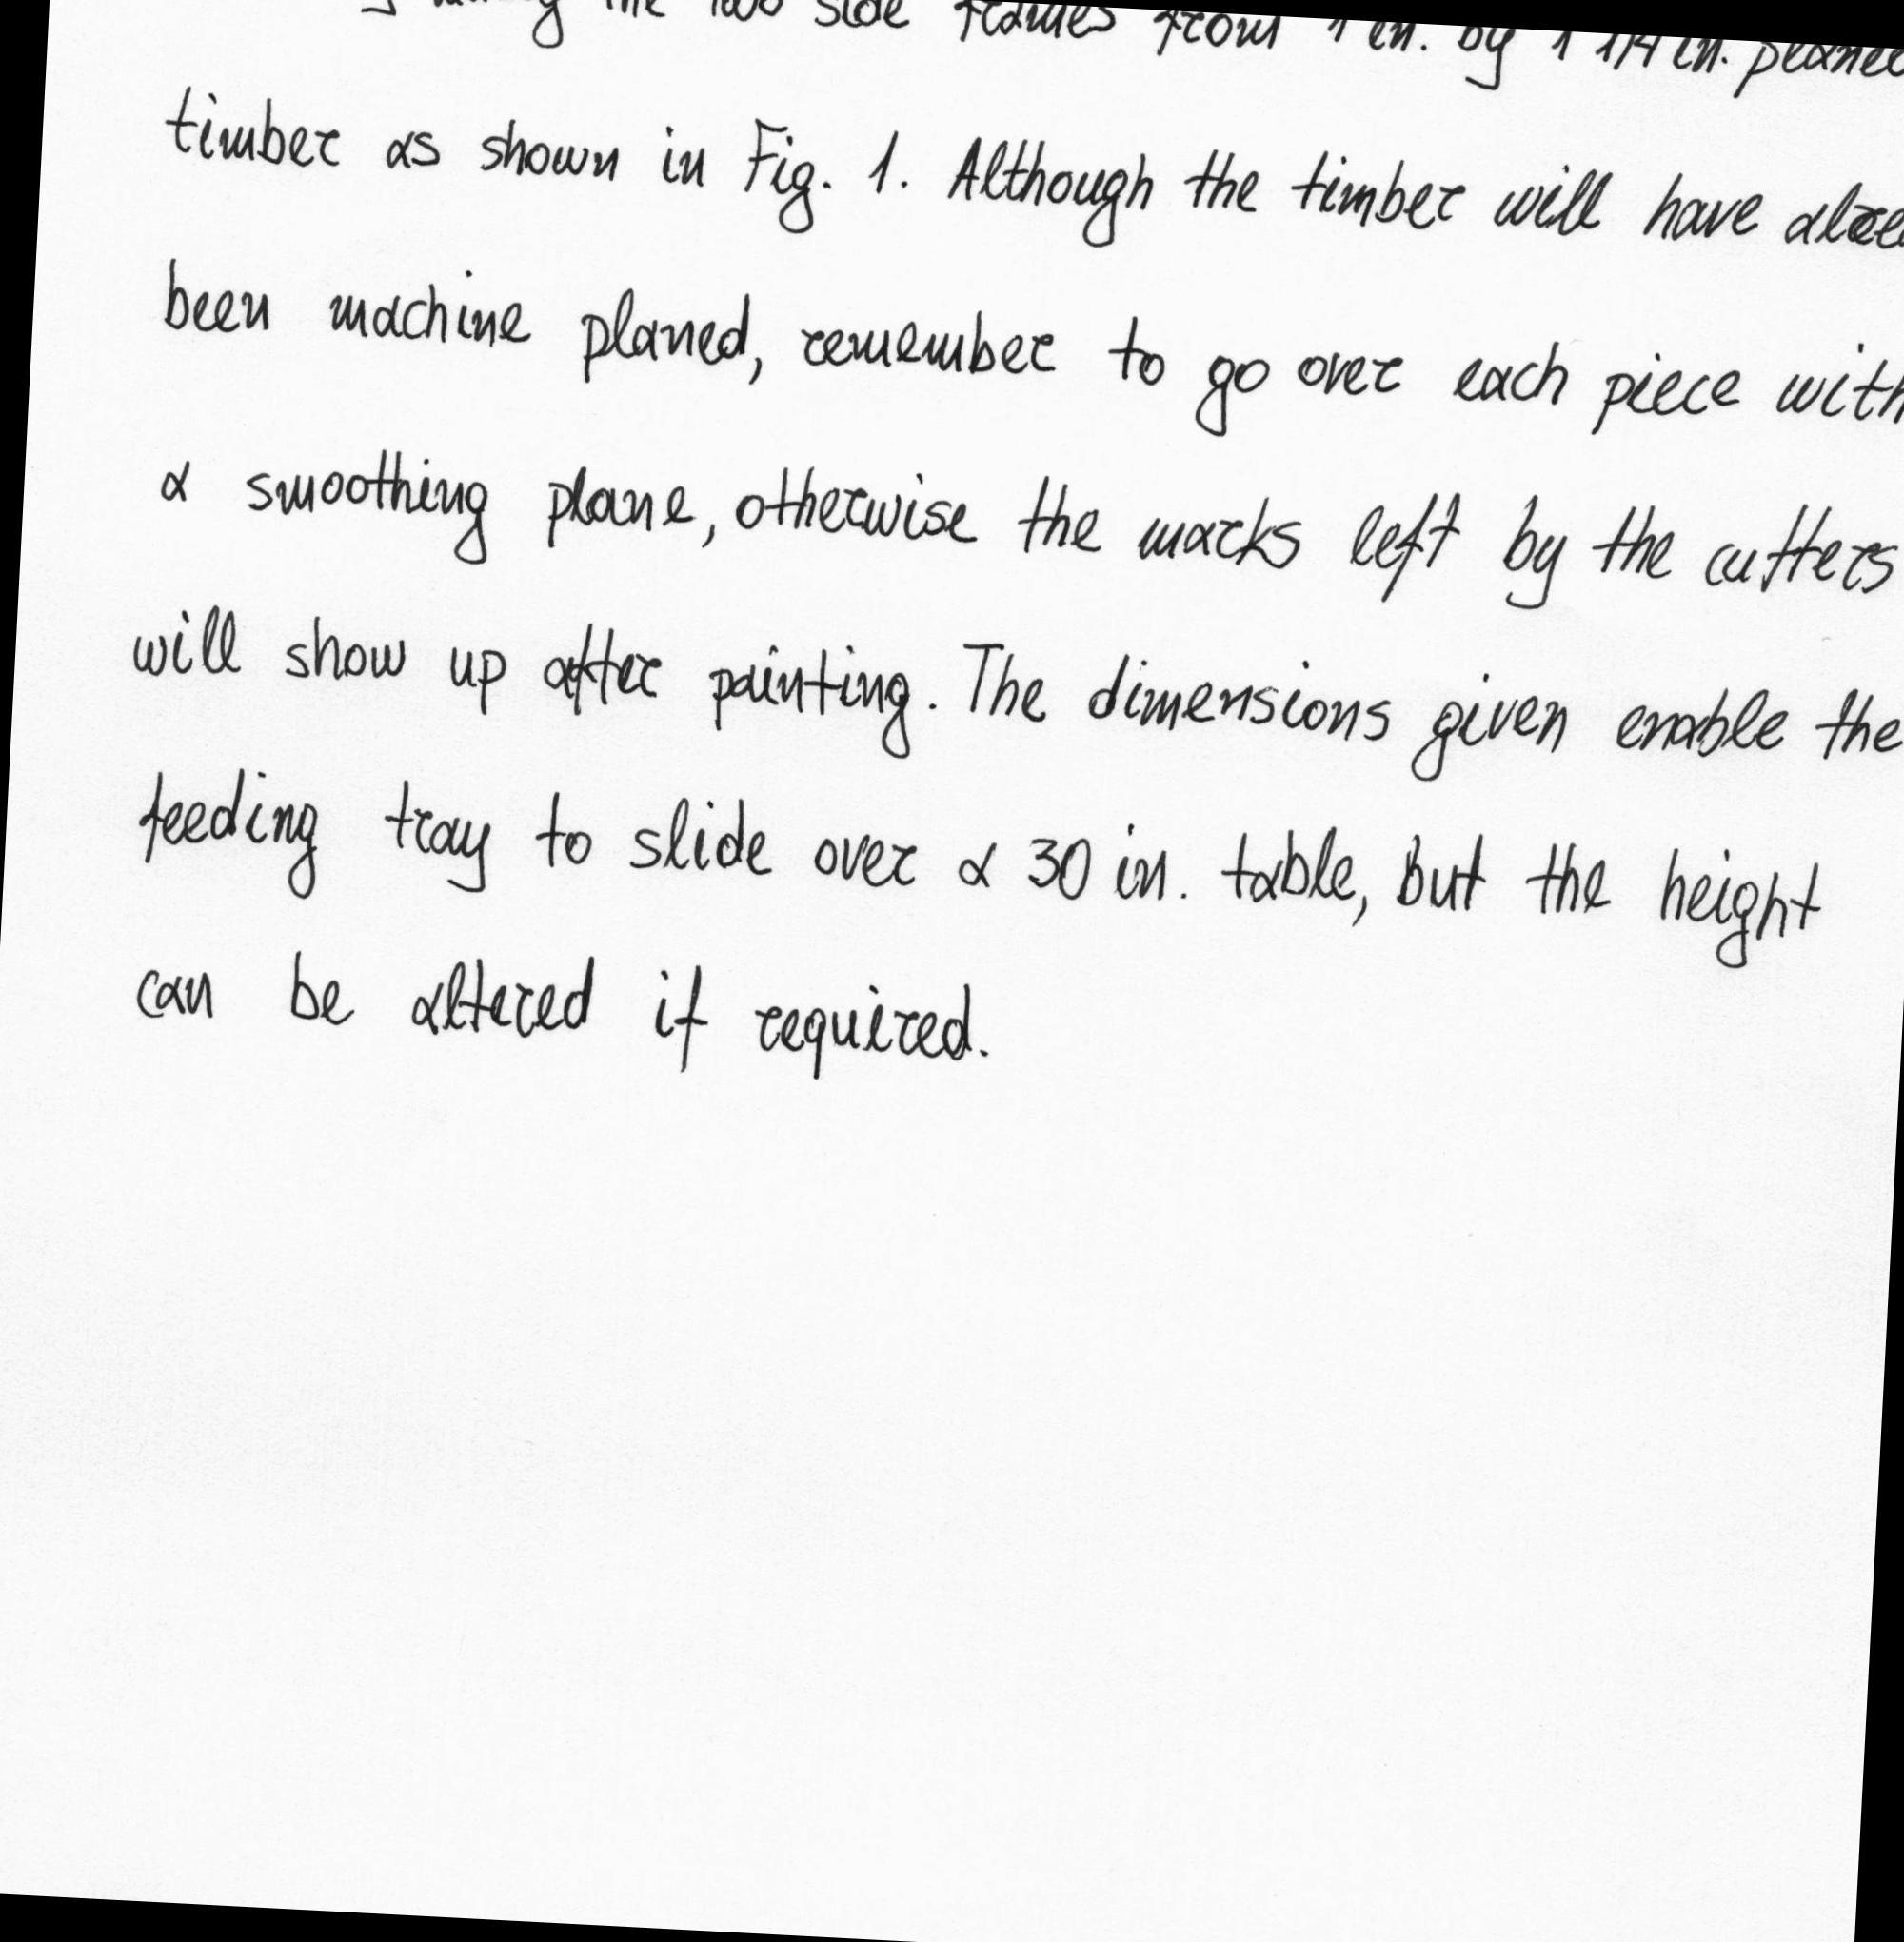 the two side frames from 1 in. by 1 1/4 in. planed
timber as shown in Fig. 1. Although the timber will have
been machine planed, remember to go over each piece with
a smoothing plane, otherwise the marks left by the cutters
will show up after painting. The dimensions given enable the
feeding tray to slide over a 30 in. table, but the height
can be altered if required.